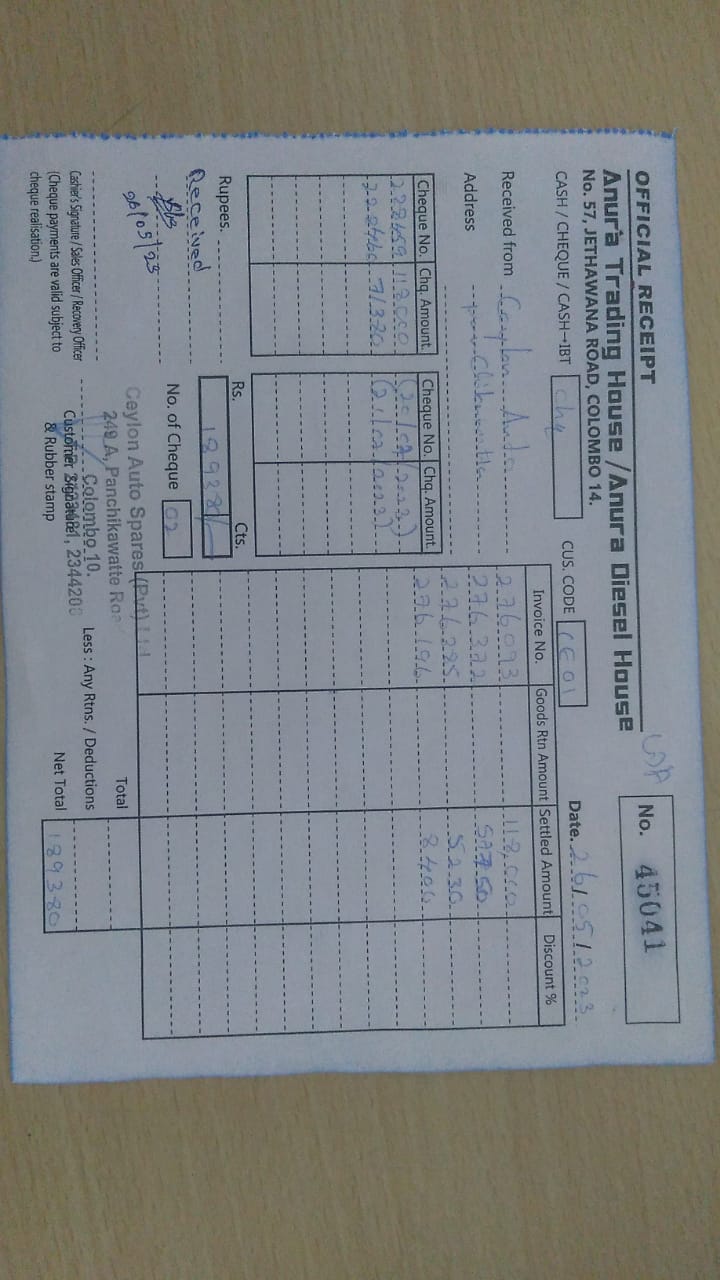 OFFICIAL RECEIPT
No. 45041
Anura Trading House / Anura Diesel House
No. 57, JETHAWANA ROAD, COLOMBO 14.
Date. 26/05/2023
CASH / CHEQUE / CASH-IBT Chq
CUS. CODE CE01
Received from Ceylon Auto
Address panchikawatta
Invoice No. Goods Rtn Amount Settled Amount Discount %
276093 118,000
276372 57750
276285 5230
276196 8400
Cheque No. Chq. Amount. Cheque No. Chq. Amount.
228459 118,000
228460 71380
Rupees.
Rs. Cts.
189380/-
Received
26/05/23
No. of Cheque 02
Ceylon Auto Spares (Pvt) Ltd
249 A, Panchikawatte Roa
Colombo 10.
2344208
Cashier's Signature / Sales Officer / Recovery Officer
(Cheque payments are valid subject to
cheque realisation.)
Customer Signature
& Rubber stamp
Total
Less : Any Rtns. / Deductions
Net Total 189380